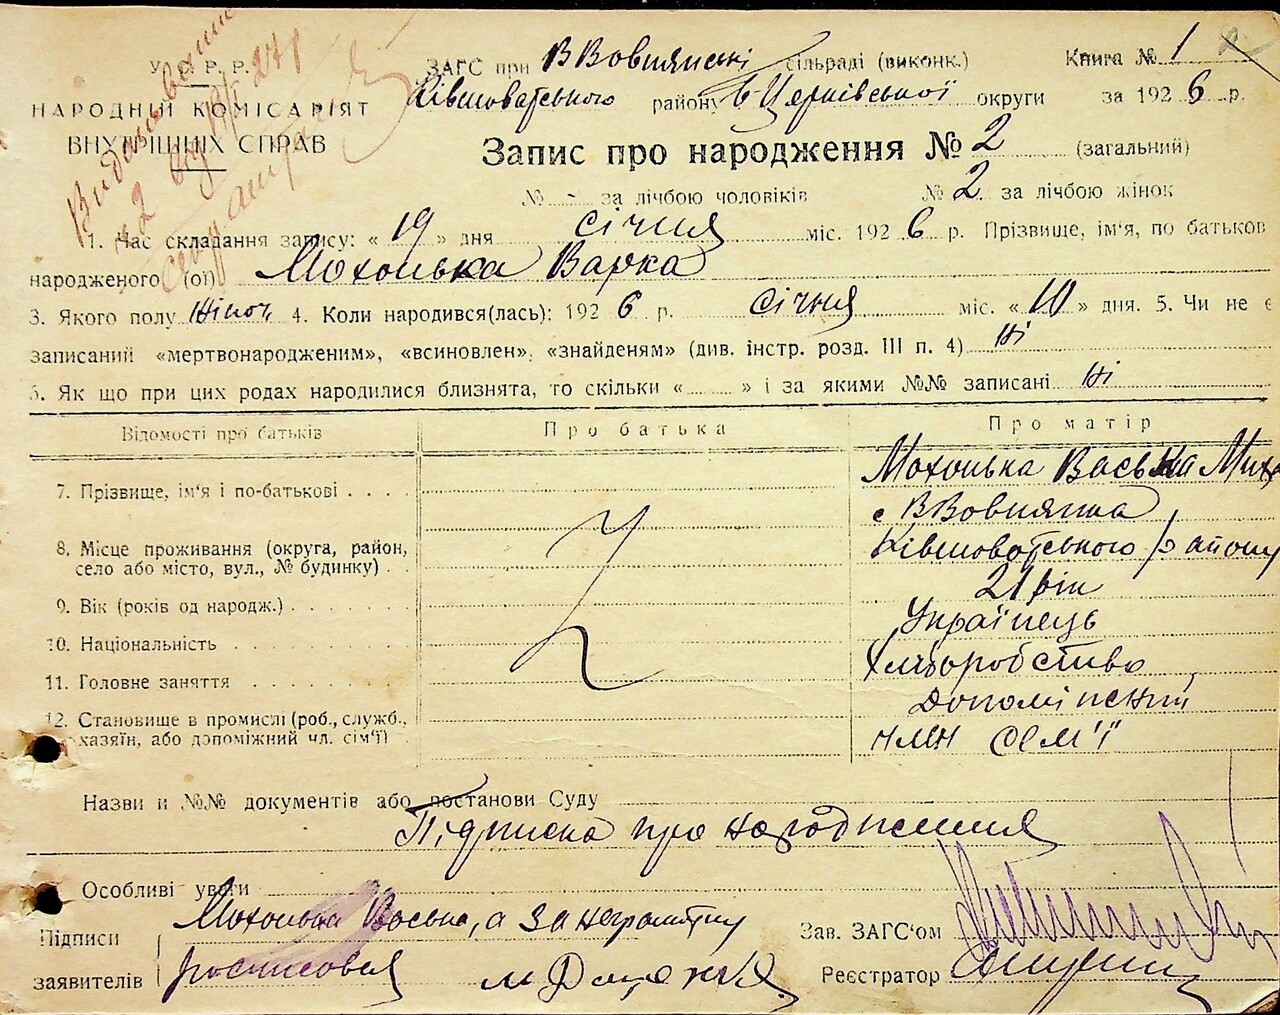 У.С.Р.Р.
НАРОДНИЙ КОМІСАРІЯТ
ВНУТРІШНІХ СПРАВ
ЗАГС при ВВовнянскі сільраді (виконк.) Книга № 1
Ківшоватського району Б Церківської округи за 1926 р.
Запис про народження № 2 (загальний)
№ - за лічбою чоловіків № 2. за лічбою жінок
1. Час складання запису: « 19 » дня січня міс. 1926 р. Прізвище, ім'я, по батьков
народженого (ої) Мохонька Варка
3. Якого полу жіноч 4. Коли народився(лась): 1926 р. січня міс. « 10 » дня. 5. Чи не є
записаний «мертвонародженим», «всиновлен», «знайденям» (див. інстр. розд. III п. 4) Ні
6. Як що при цих родах народилися близнята, то скільки « » і за якими №№ записані Ні
Відомості про батьків Про батька Про матір
7. Прізвище, ім'я і по-батькові Мохонька Васька Мих
с ВВовнянка
8. Місце проживання (округа, район, село або місто, вул., № будинку) Ківшоватського району
9. Вік (років од народж.) 21 рік
10. Національність Українець
11. Головне заняття Хліборобство
12. Становище в промислі (роб., служб., хазяїн, або допоміжний чл. сім'ї) Допоміжний
член сем'ї
Назви и №№ документів або постанови Суду
Підписка про народження
Особливі уваги
Підписи заявителів Мохонька Васька, а за неграмотну
росписовся
Зав. ЗАГС'ом
Реєстратор